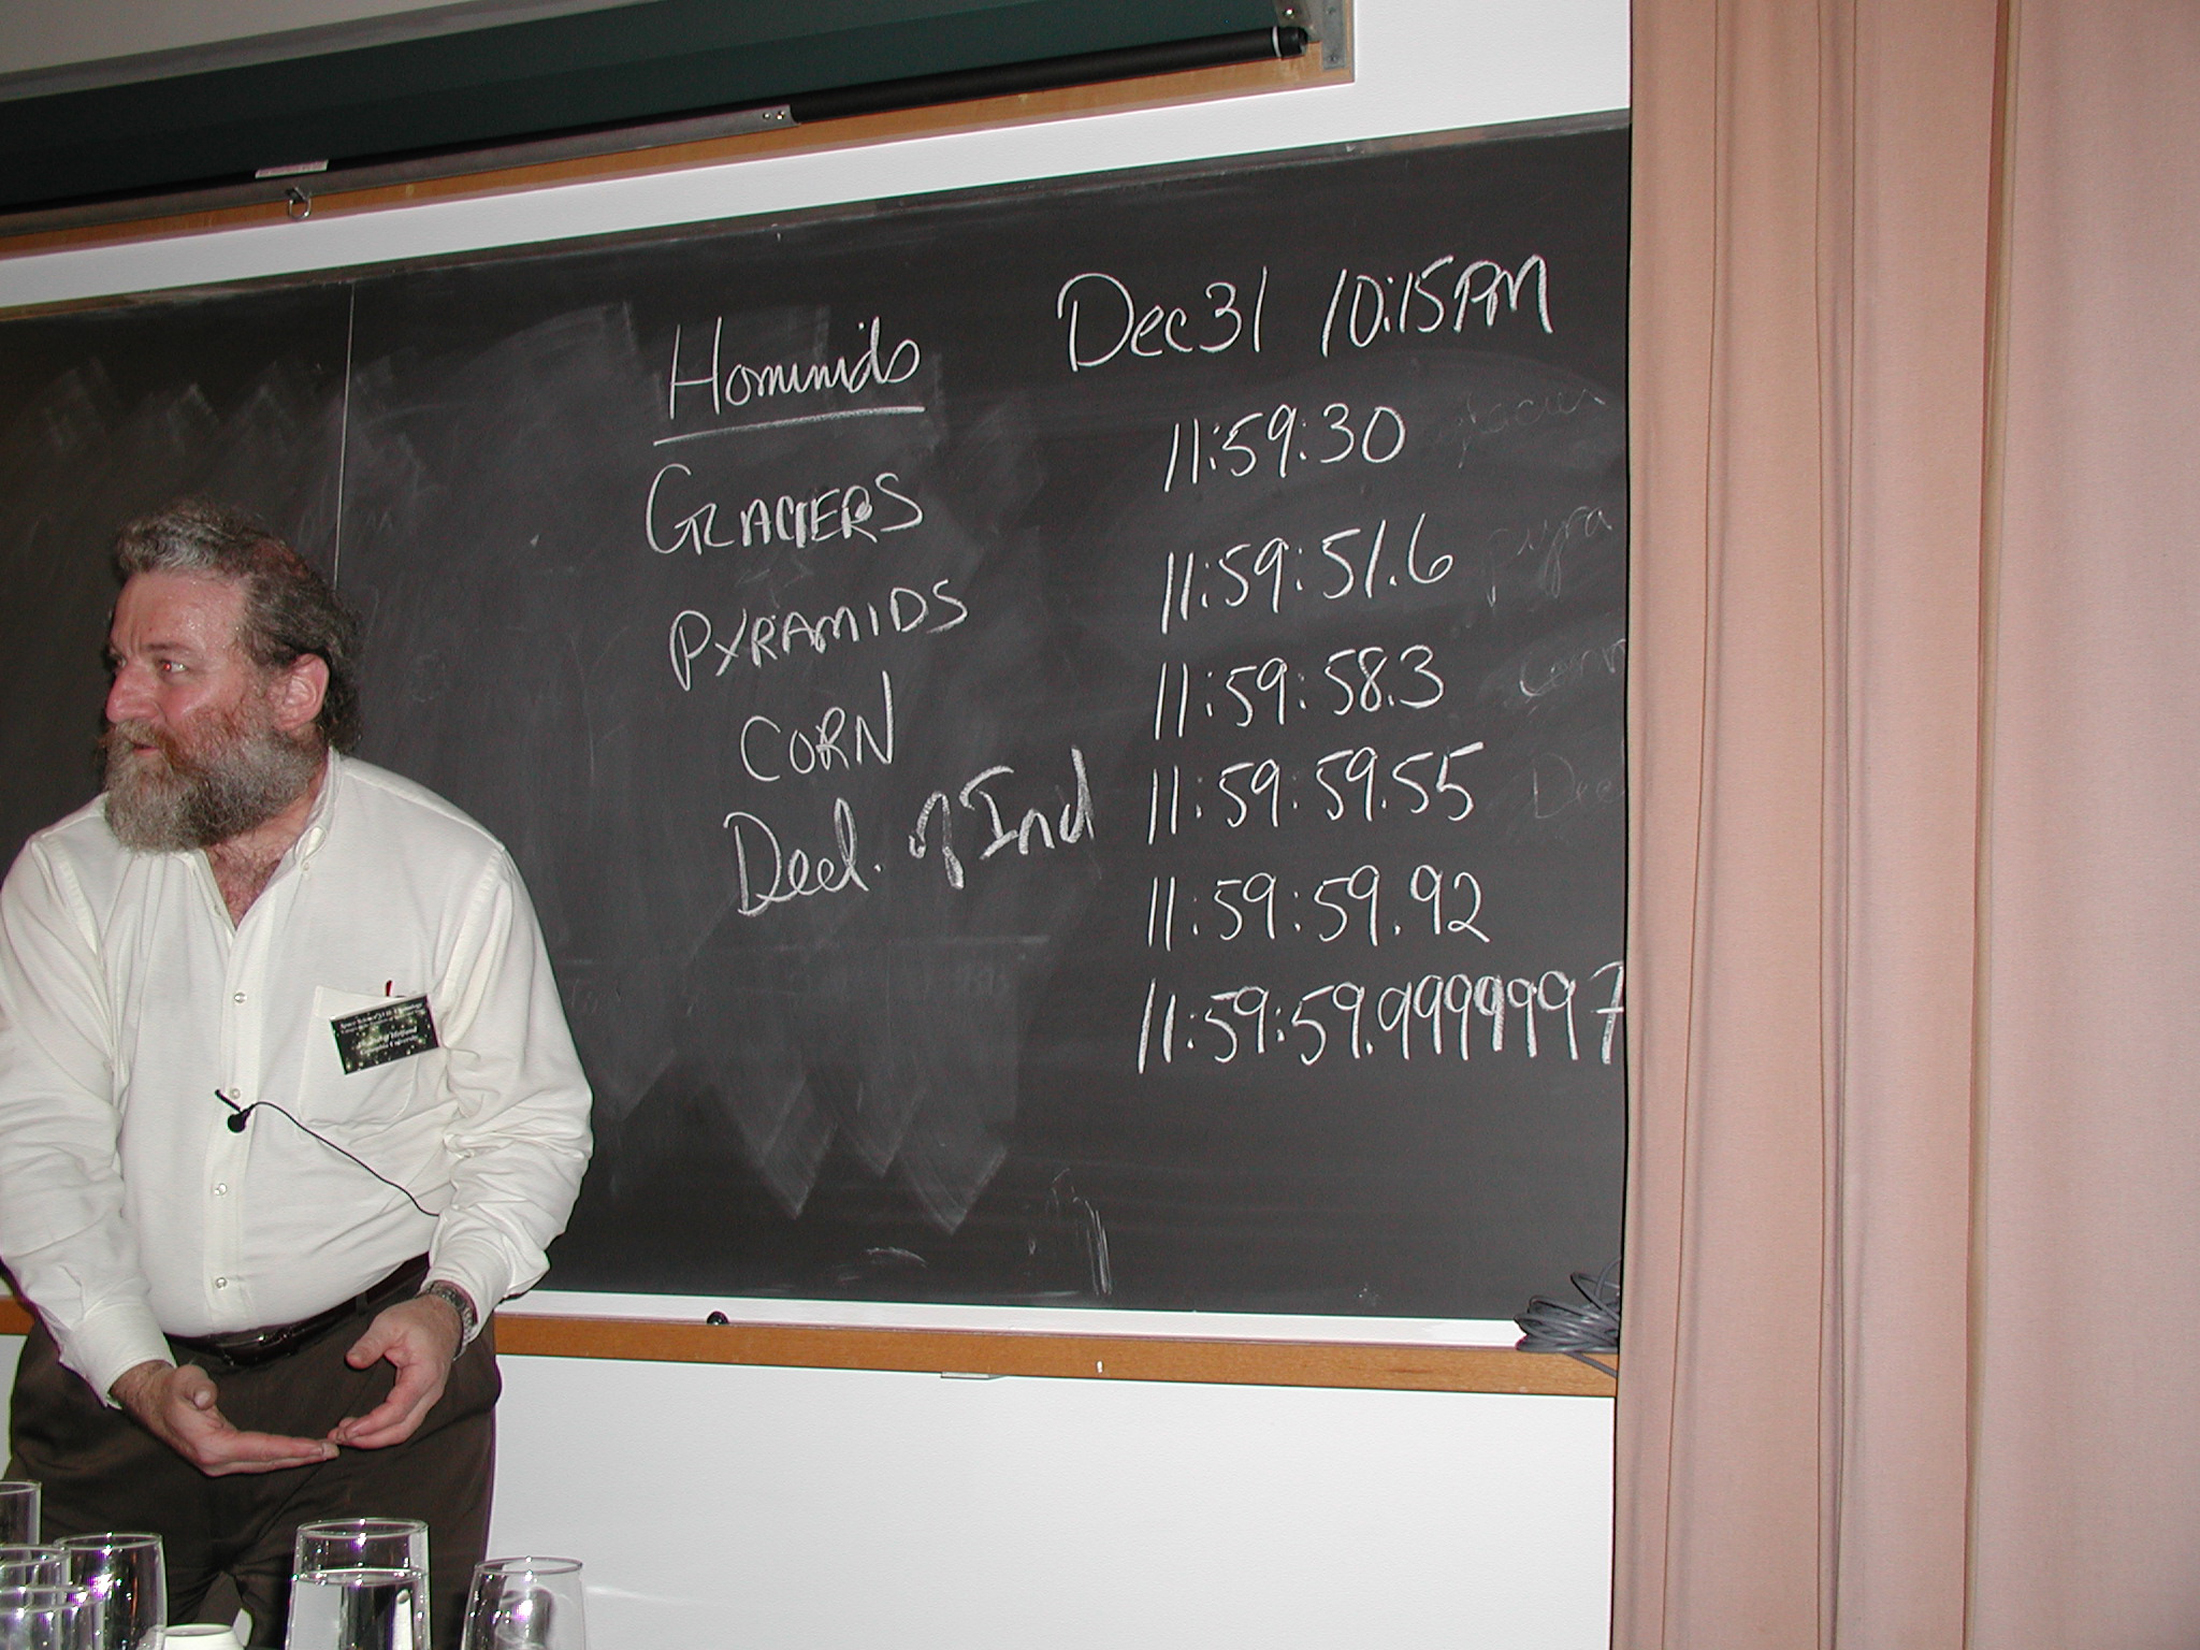 Hominids Dec 31 10:15PM
GLACIERS 11:59:30
PYRAMIDS 11:59:51.6
CORN 11:59:58.3
Decl. of Ind 11:59:59.55
11:59:59.92
11:59:59.9999997
glacier
pyra
Corn
Dec